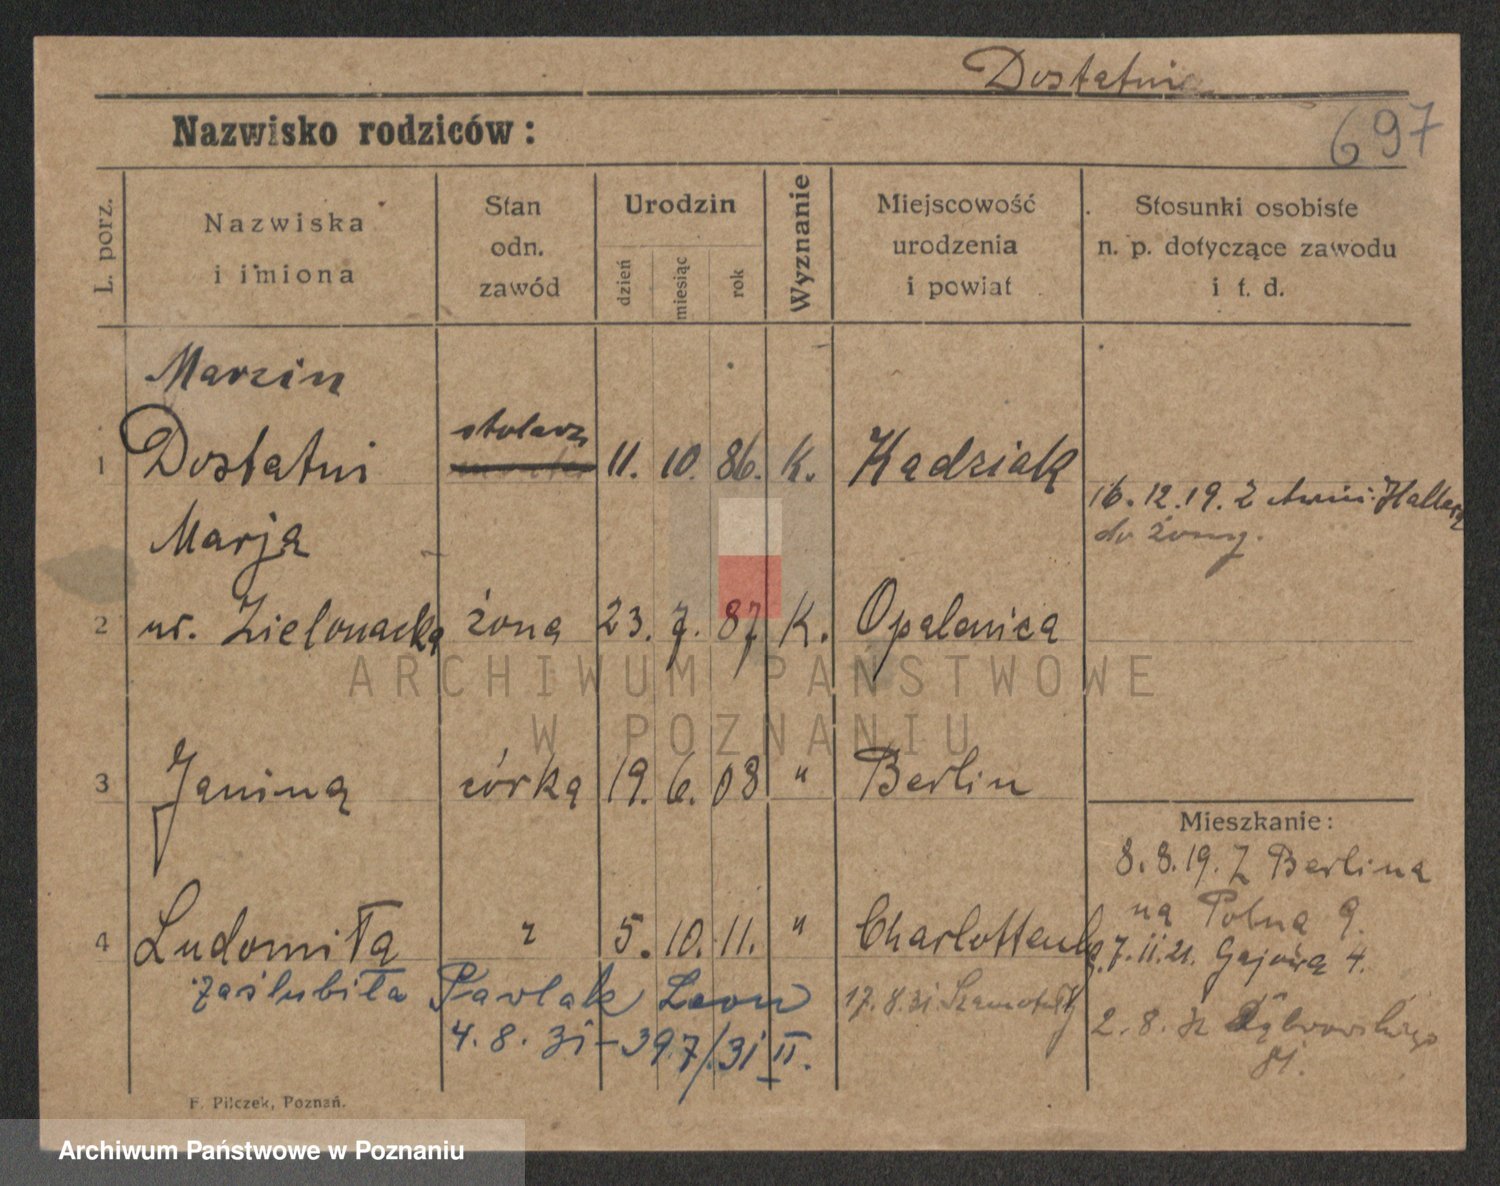 Dostatnie
697
Nazwisko rodziców:
L. porz.
Nazwiska
i imiona
Stan
odn.
zawód
Urodzin
dzień
miesiąc
rok
Wyznanie
Miejscowość
urodzenia
i powiat
Stosunki osobiste
n. p. dotyczące zawodu
i t. d.
Marcin
1 Dostatni stolarz 11. 10. 86. K. Kadziak
16.12.19. Z Armii Hallera
do żony.
Marja
2 ur. Zielonacka żona 23. 7. 87 K. Opalenica
3 Janina córka 19. 6. 08 " Berlin
Mieszkanie:
8.8.19. Z Berlina
na Polna 9.
4 Ludomiła " 5. 10. 11. " Charlottenbg.
7.11.21. Gajowa 4.
zaślubiła Pawlak Leon
17.8.31 Szamotuły
2.8.32 Dąbrowskiego
81.
4. 8. 31 - 397/31 II.
F. Pilczek, Poznań.
ARCHIWUM PAŃSTWOWE
W POZNANIU
Archiwum Państwowe w Poznaniu